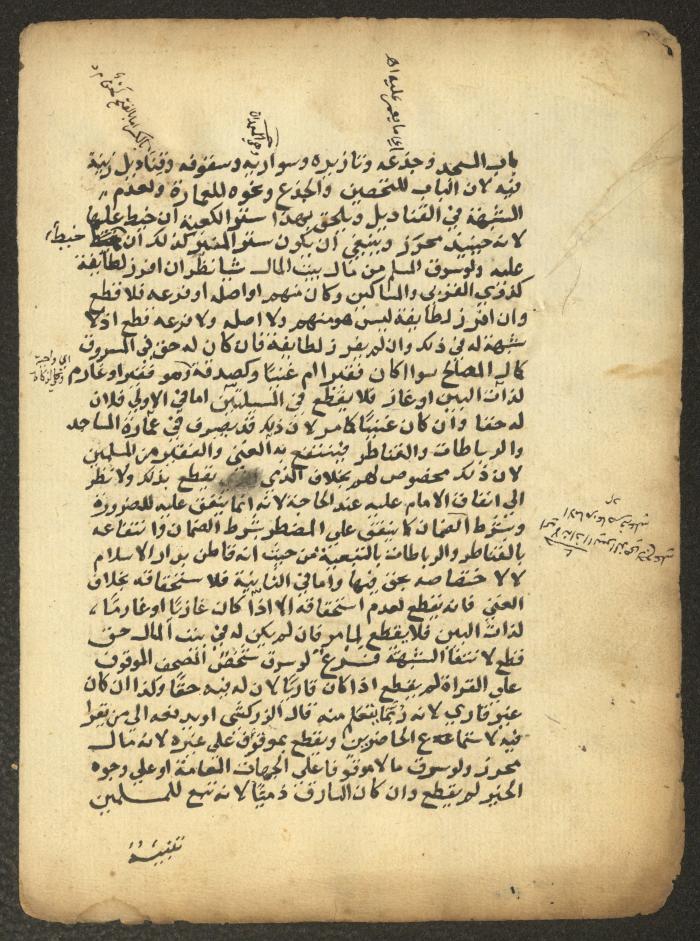 باب المسجد وجذعه وتازيره وسواريه وسقوفه وقناديل زينة
فيه لان الباب للتحصين والجذع ونحوه للعمارة ولعدم
الشبهة في القناديل ويلحق بهذا ستر الكعبة ان خيط عليها
لانه حينيذ محرز وينبغي ان يكون ستر المنبر كذلك ان خيط
عليه ولو سرق المسلم من مال بيت المال شيا نظر ان افرز لطايفة
كذوي القربي والمساكين وكان منهم او اصله او فرعه فلا قطع
وان افرز لطايفة ليس هو منهم ولا اصله ولا فرعه قطع اذ لا
شبهة له في ذلك وان لم يفرز لطايفة فان كان له حق في المسروق
كمال المصالح سوا اكان فقيرا ام غنيا وكصدقة وهو فقير او غارم
لذات البين او غاز فلا يقطع في المسلتين اما في الاولي فلان
له حقا وان كان غنيا كما مر لان ذلك قد يصرف في عمارة المساجد
والرباطات والقناطر فينتفع به الغني والفقير من المسلمين
لان ذلك مخصوص لهم بخلاف الذمي يقطع بذلك ولا نظر
الي انفاق الامام عليه عند الحاجة لانه انما ينفق عليه للضرورة
وبشرط الضمان كما ينفق علي المضطر بشرط الضمان وانتفاعه
بالقناطر والرباطات بالتبعية من حيث انه قاطن بدار الاسلام
لا لاختصاصه بحق فيها واما في الثانية فلاستحقاقه بخلاف
الغني فانه يقطع لعدم استحقاقه الا اذا كان غازيا او غارما
لذات البين فلا يقطع لما مر فان لم يكن له في بيت المال حق
قطع لانتفا الشبهة فرع لو سرق شخص المصحف الموقوف
علي القراة لم يقطع اذا كان قاريا لان له فيه حقا وكذا ان كان
غير قاري لانه ربما يتعلم منه قال الزركشي او يدفعه الي من يقرا
فيه لاستماع الحاضرين ويقطع بموقوف علي غيره لانه مال
محرز ولو سرق مالا موقوفا علي الجهات العامة او علي وجوه
الخير لم يقطع وان كان السارق ذميا لانه تبع للمسلمين
تنبيه
اي ما يعمر عليه اه
خيط